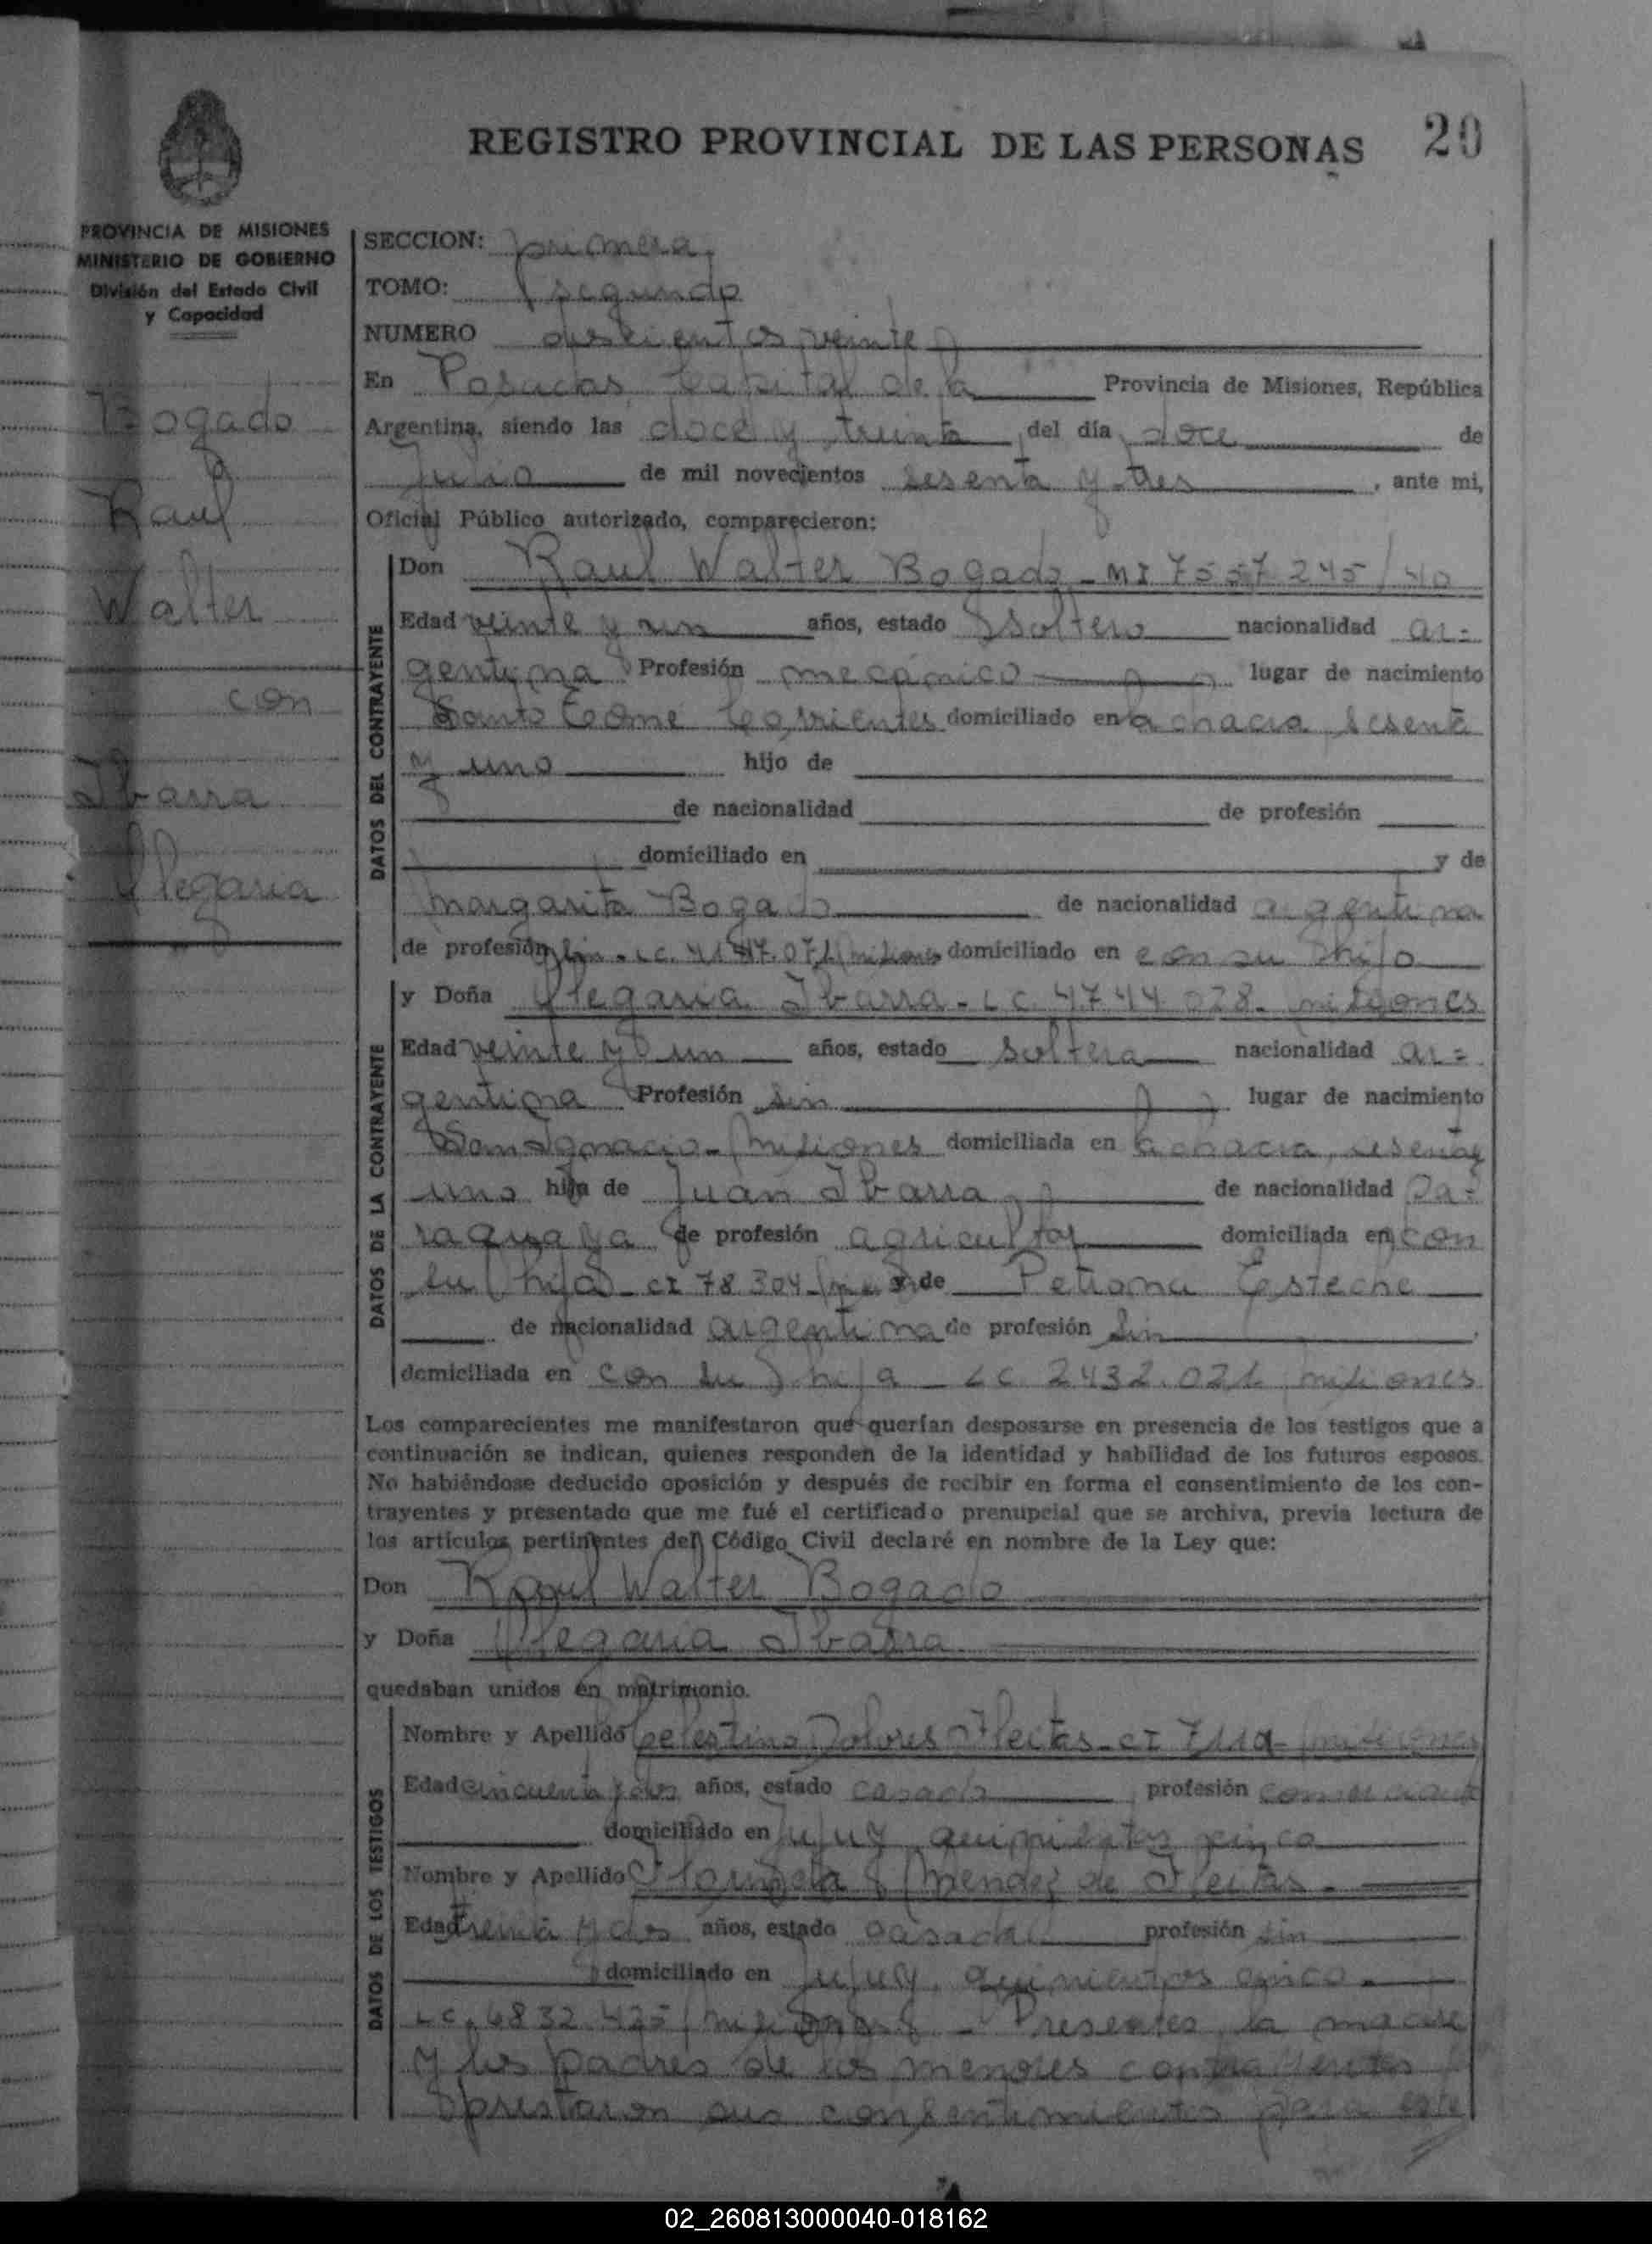 REGISTRO PROVINCIAL DE LAS PERSONAS 20
PROVINCIA DE MISIONES
MINISTERIO DE GOBIERNO
División del Estado Civil
y Capacidad
Bogado
Raul
Walter
con
Ibarra
Olegaria
SECCION: primera
TOMO: segundo
NUMERO doscientos veinte
En Posadas, Capital de la Provincia de Misiones, República
Argentina, siendo las doce y treinta del día doce de
Julio de mil novecientos sesenta y tres, ante mi,
Oficial Público autorizado, comparecieron:
DATOS DEL CONTRAYENTE
Don Raul Walter Bogado - MI 7557245/40
Edad veinte y un años, estado soltero nacionalidad ar=
gentina Profesión mecánico lugar de nacimiento
Santo Tomé Corrientes domiciliado en la chacra sesenta
y uno hijo de
de nacionalidad de profesión
domiciliado en y de
Margarita Bogado de nacionalidad argentina
de profesión sin - LC. domiciliado en con su hijo
DATOS DE LA CONTRAYENTE
y Doña Olegaria Ibarra - LC 4744 028 - misiones
Edad veinte y un años, estado soltera nacionalidad ar=
gentina Profesión sin lugar de nacimiento
San Ignacio - Misiones domiciliada en la chacra, sesenta y
uno hija de Juan Ibarra de nacionalidad Pa=
raguaya de profesión agricultor domiciliada en con
su hija - CI 78.304 y de Petrona Esteche
de nacionalidad argentina de profesión sin
domiciliada en con su hija - LC 2432.021 misiones
Los comparecientes me manifestaron que querían desposarse en presencia de los testigos que a
continuación se indican, quienes responden de la identidad y habilidad de los futuros esposos.
No habiéndose deducido oposición y después de recibir en forma el consentimiento de los con-
trayentes y presentado que me fué el certificado prenupcial que se archiva, previa lectura de
los artículos pertinentes del Código Civil declaré en nombre de la Ley que:
Don Raul Walter Bogado
y Doña Olegaria Ibarra
quedaban unidos en matrimonio.
DATOS DE LOS TESTIGOS
Nombre y Apellido Celestino Dolores Fleitas - CI misiones
Edad cincuenta y dos años, estado casado profesión comerciante
domiciliado en Jujuy quinientos cinco
Nombre y Apellido Mendez de Fleitas -
Edad treinta y dos años, estado casada profesión sin
domiciliado en Jujuy, quinientos cinco -
LC. 6832.425 misiones - Presentes la madre
y los padres de los menores contrayentes
prestaron sus consentimientos para este
02_260813000040-018162